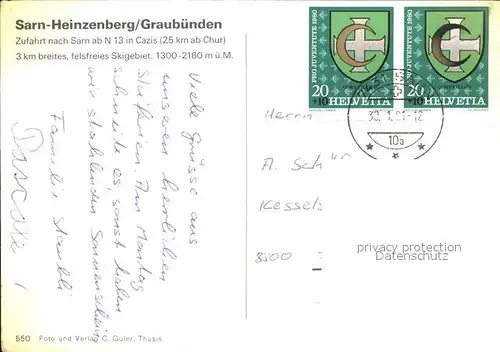 Sarn-Heinzenberg/Graubünden
Zufahrt nach Sarn ab N 13 in Cazis (25 km ab Chur)
3 km breites, felsfreies Skigebiet. 1300-2160 m ü.M.
Viele Grüsse aus
unseren herrlichen
Skiferien. Am Montag
schneite es, sonst haben
wir strahlenden Sonnenschein
Familie
Pascale
550 Foto und Verlag C. Guler, Thusis
PRO JUVENTUTE 1980
20
+10 HELVETIA
PRO JUVENTUTE 1980
20
+10 HELVETIA
10a
Herrn
A. Sch
Kessel
8500
privacy protection
Datenschutz